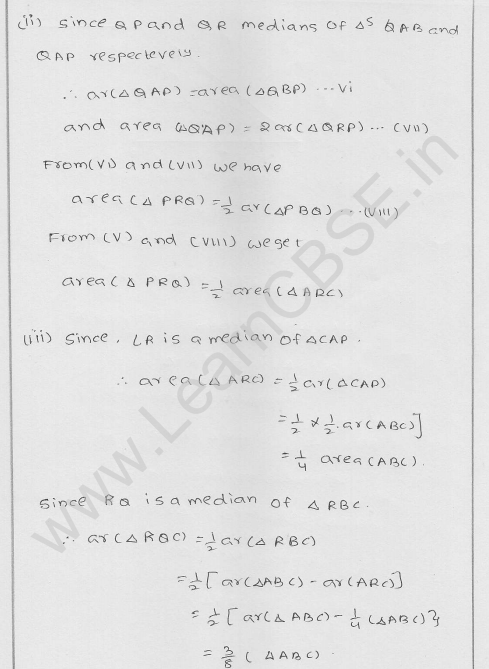 (ii) Since QP and QR medians of Δˢ QAB and
QAP respectevely.
∴ ar(ΔQAP) = area (ΔQBP) ... vi
and area (ΔQAP) = 2ar(ΔQRP) ... (VII)
From (VI) and (VII) we have
area (Δ PRQ) = 1/2 ar(ΔPBQ) ... (VIII)
From (V) and (VIII) we get
area (Δ PRQ) = 1/2 area (Δ ARC)
(iii) Since, LR is a median of ΔCAP.
∴ area (Δ ARC) = 1/2 ar(ΔCAP)
= 1/2 × 1/2 . ar(ABC)]
= 1/4 area (ABC).
Since RQ is a median of Δ RBC.
∴ ar(Δ RQC) = 1/2 ar(Δ RBC)
= 1/2 [ar(ΔABC) - ar(ARC)]
= 1/2 [ar(Δ ABC) - 1/4 (ΔABC)}
= 3/8 ( ΔABC).
www.LearnCBSE.in